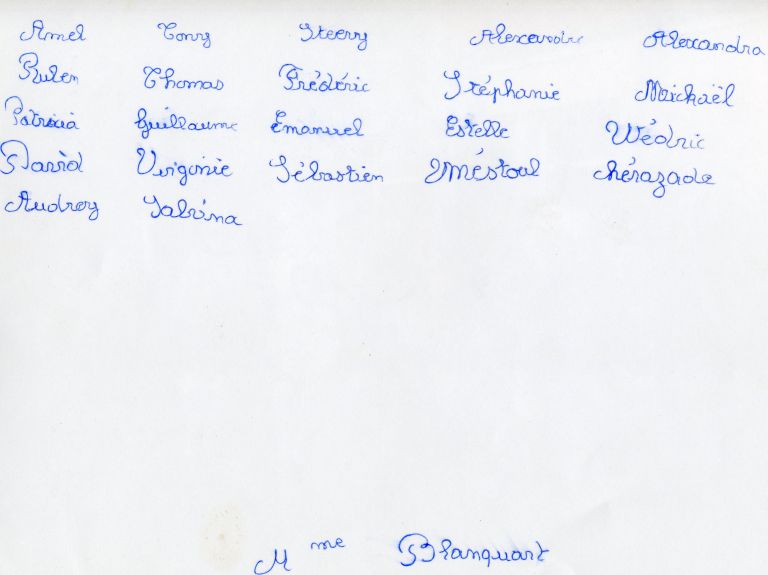 Amel Tony Steevy Alexandre Alexandra
Ruben Thomas Frédéric Stéphanie Maickaël
Patricia Guillaume Emanuel Estelle Wédric
David Virginie Sébastien chérazade
Audrey Sabrina
Mme Blanquart